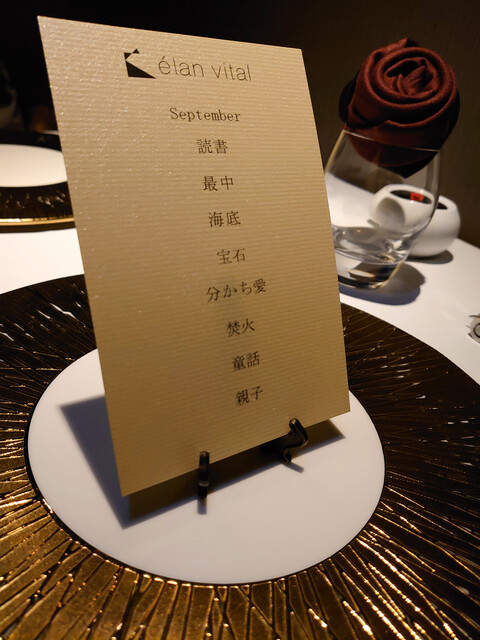 élan vital
September
読書
最中
海底
宝石
分かち愛
焚火
童話
親子